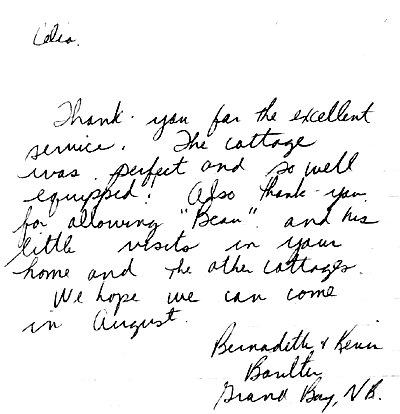 Celia.
Thank-you for the excellent
service. The cottage
was perfect and so well
equipped! Also thank-you
for allowing "Beau" and his
little visits in your
home and the other cottages.
We hope we can come
in August.
Bernadette & Kevin
Boulter
Grand Bay, N.B.